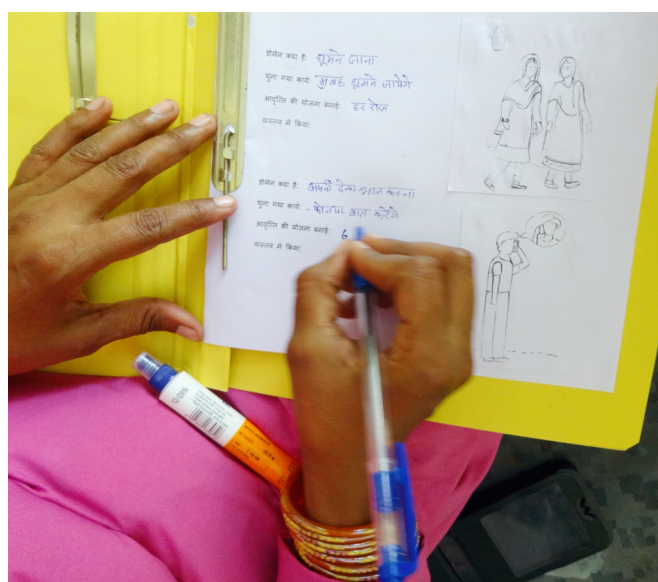 डोमेन क्या है: घूमने जाना
चुना गया कार्य: सुबह घूमने जायेगे
आवृत्ति की योजना बनाई: हर रोज
वास्तव में किया:
डोमेन क्या है: अपनी देखभाल करना
चुना गया कार्य: फोन पर बात करेंगे
आवृत्ति की योजना बनाई: 6
वास्तव में किया: